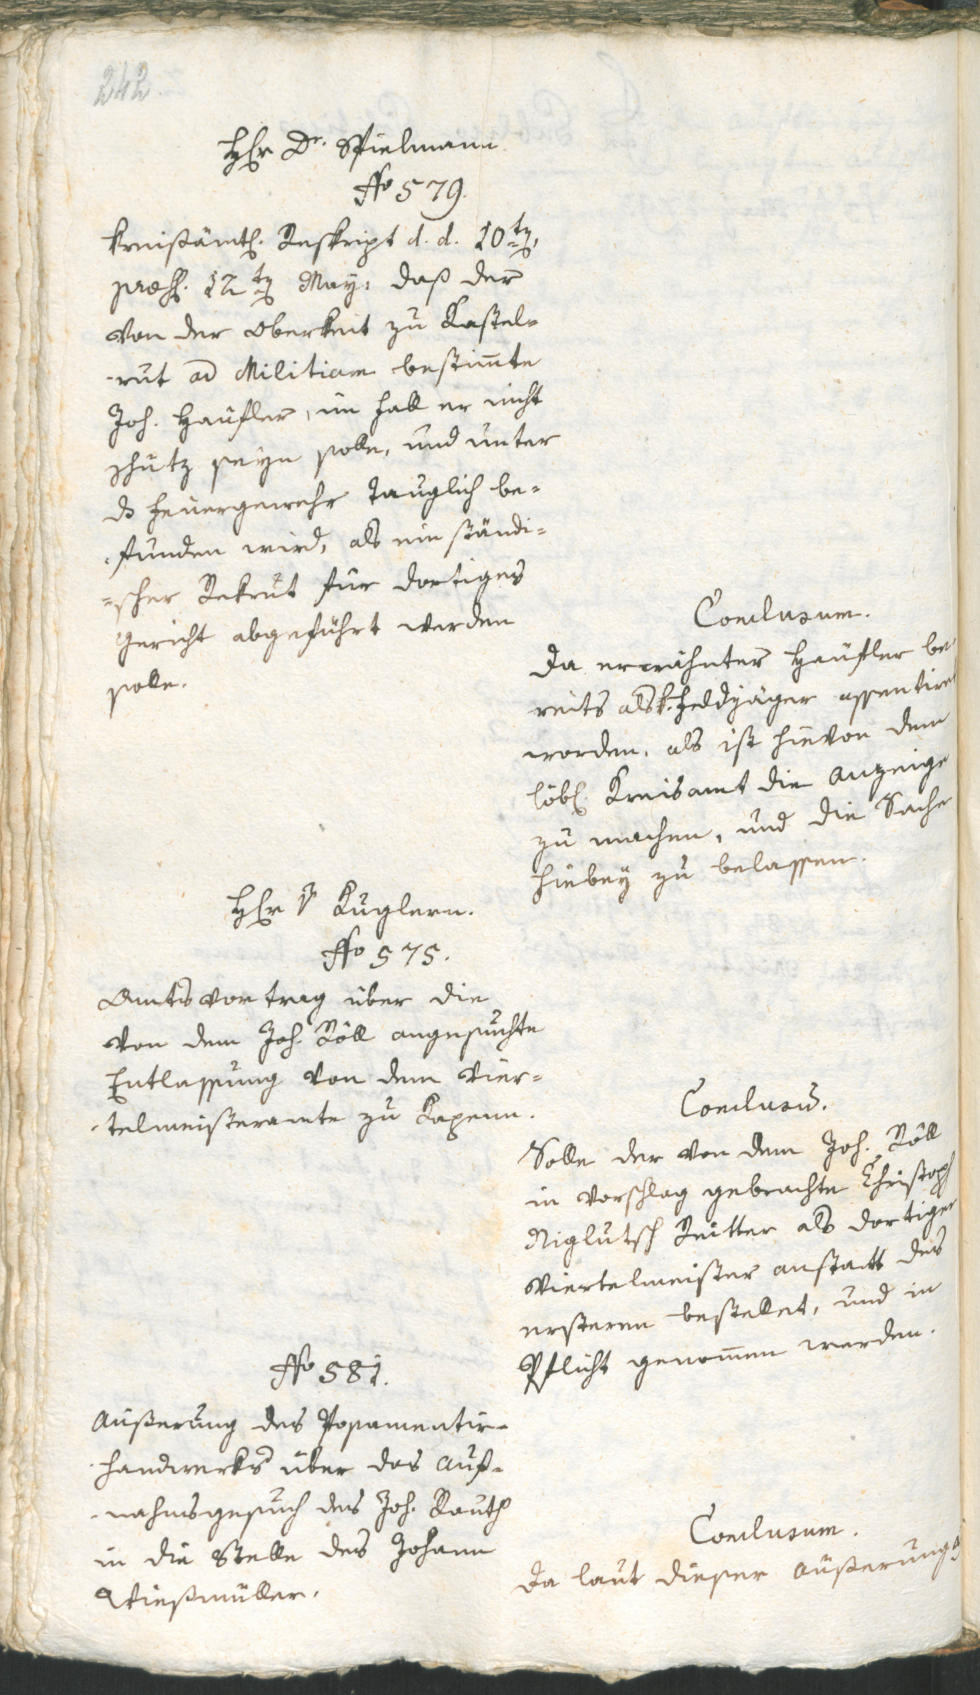 242.
H[er]r Dr. Spielmann
No 579.
Kreißämtl. Reskript d. d. 10t[en],
præs. 12t[en] May: daß der
von der Oberkeit zu Kastel=
=rut ad Militiam bestim̅te
Joh. Haüsler, im Fall er nicht
schutz seyn solle, und unter
ds Feuergewehr tauglich be=
=funden wird, als ein ständi=
=scher Rekrut für dortiges
Gericht abgeführt werden
solle.
Conclusum.
Da erwähnter Haüsler be=
reits als k. Feldjäger assentiret
worden, als ist hievon dem
löbl. Kreisamt die Anzeige
zu machen, und die Sache
hiebey zu belassen.
H[er]r v Kuglern.
No 575.
Amtsvortrag über die
von dem Joh. Röll angesuchte
Entlassung von dem Vier=
=telmeisteramte zu Kapenn.
Conclusu̅.
Solle der von dem Joh. Röll
in Vorschlag gebrachte Christoph
Niglutsch Reitter als dortiger
Viertelmeister anstatt des
ersteren bestellet, und in
Pflicht genom̅en werden.
No 581.
Aüßerung des Posamentir=
=handwerks über das Auf=
=nahmsgesuch des Joh. Rauth
in die Stelle des Johann
Wießmüller.
Conclusum.
Da laut dieser Aüßerung